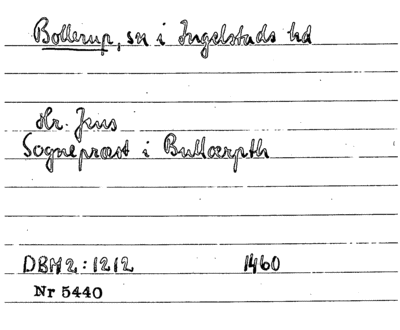 Bollerup, sn i Ingelstads hd
Hr. Jens
Sognepræst i Bullærpth
DBH 2:1212 1460
Nr 5440